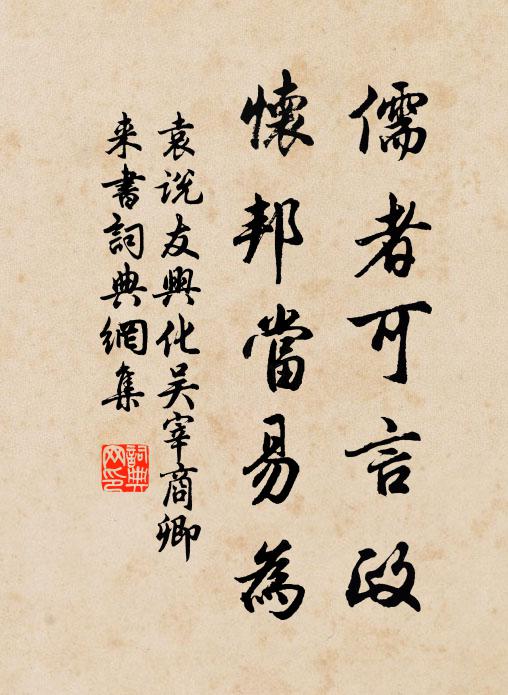 儒者可言政
懷邦當易為
袁说友興化吴宰商卿
来書詞典網集
詞典网印